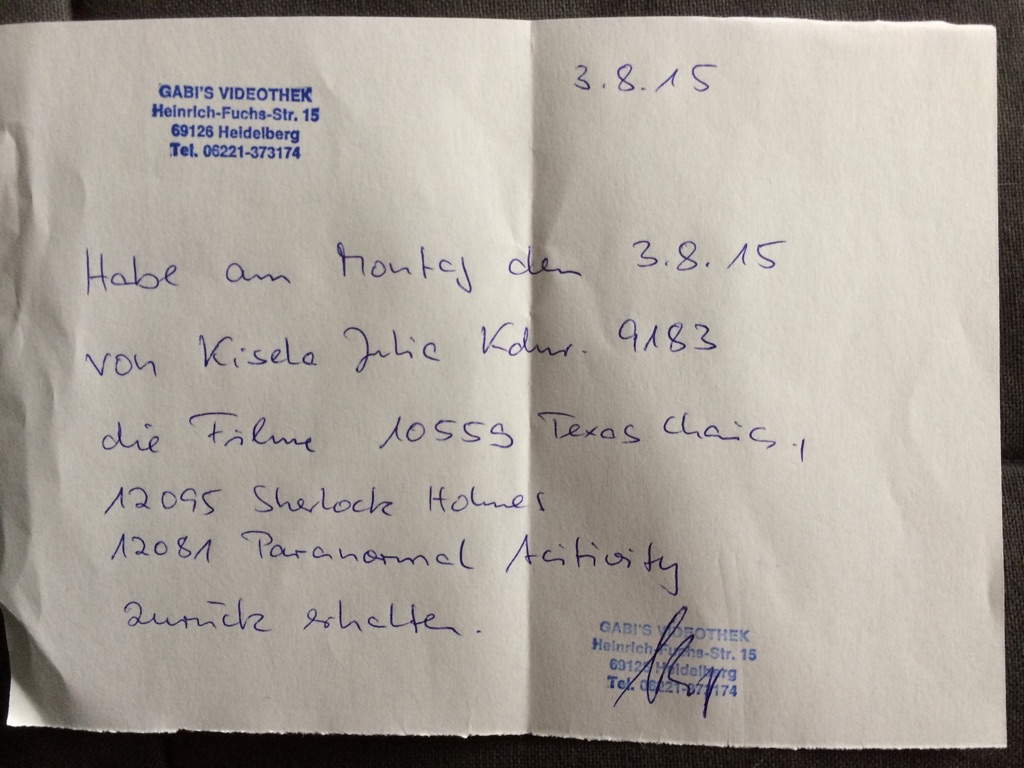 GABI'S VIDEOTHEK
Heinrich-Fuchs-Str. 15
69126 Heidelberg
Tel. 06221-373174
3.8.15
Habe am Montag den 3.8.15
von Kisela Julia Kdnr. 9183
die Filme 10559 Texas Chains,
12095 Sherlock Holmes
12081 Paranormal Acitivity
zurück erhalten.
GABI'S VIDEOTHEK
Heinrich-Fuchs-Str. 15
69126 Heidelberg
Tel. 06221-373174